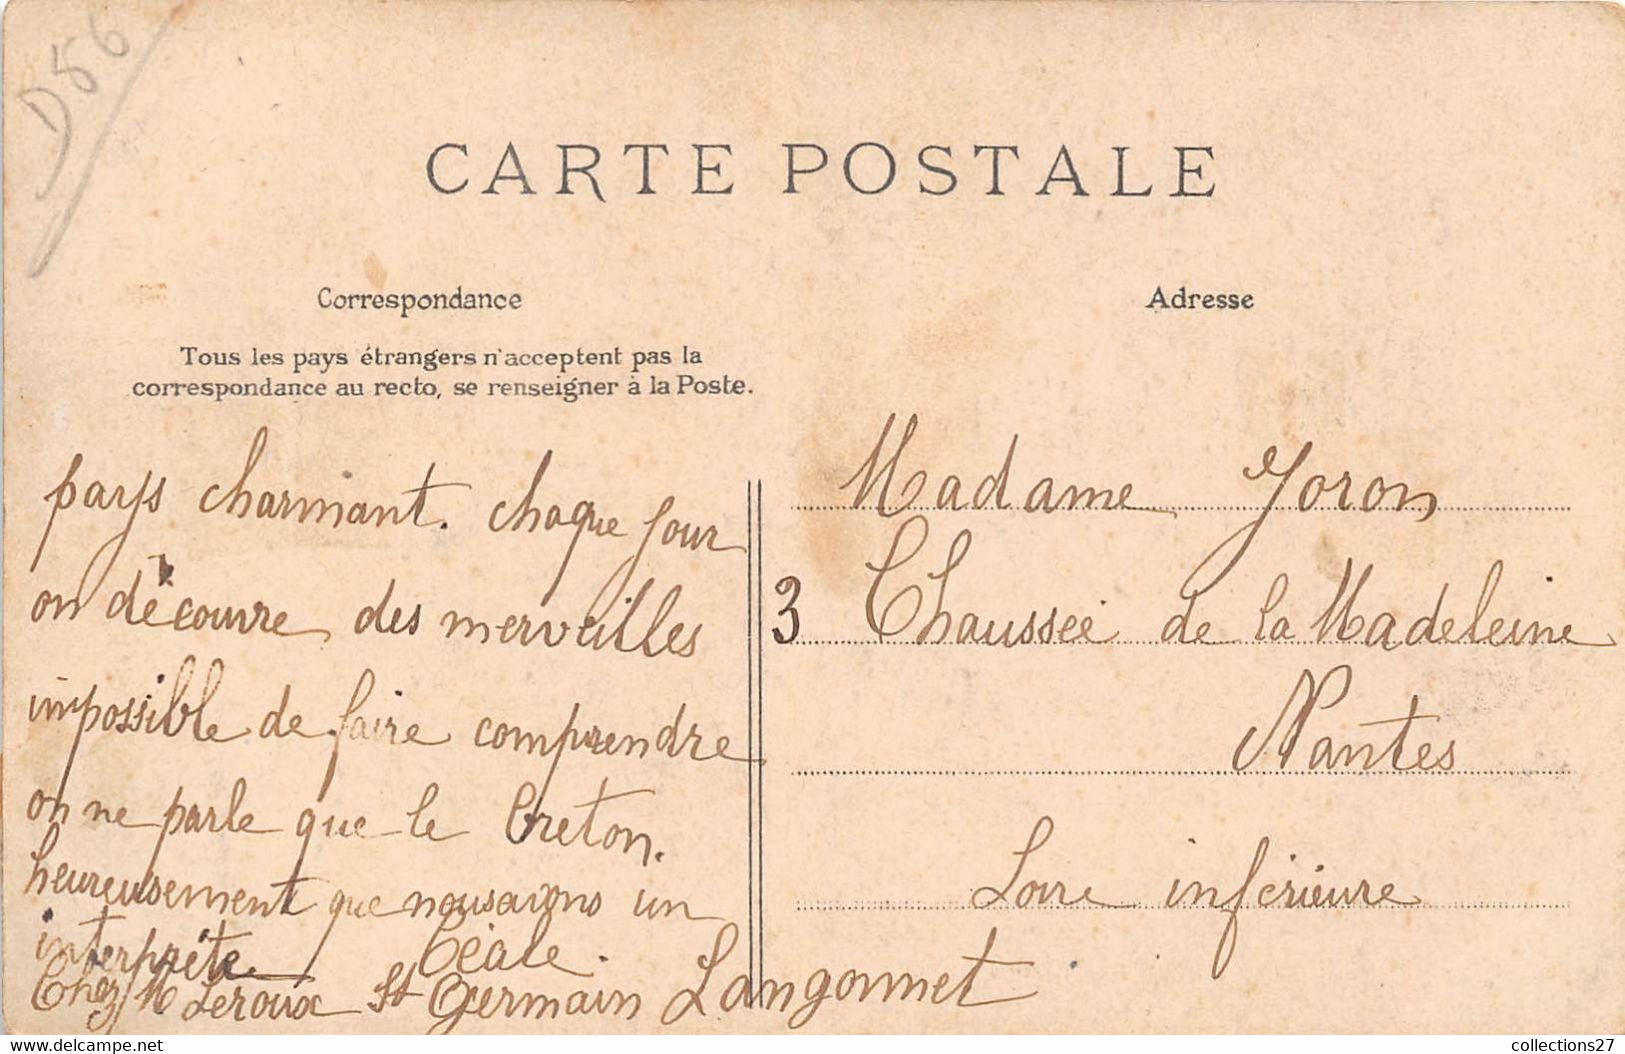 D56
CARTE POSTALE
Correspondance
Tous les pays étrangers n'acceptent pas la
correspondance au recto, se renseigner à la Poste.
pays charmant. chaque jour
on découvre des merveilles
impossible de faire comprendre
on ne parle que le breton.
heureusement que nous avons un
interprète.
Chez M Leroux St Germain Langonnet
Adresse
Madame Joron
3 Chaussée de la Madeleine
Nantes
Loire inférieure
collections27